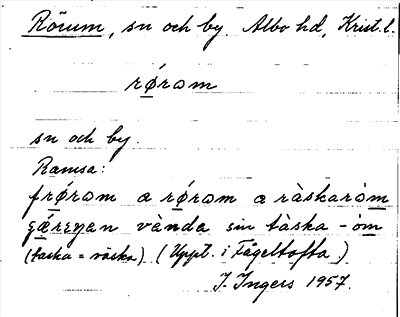 Rörum, sn och by. Albo hd, Krist. l.
rǿrɷm
sn och by.
Ramsa:
frǿrɷm a rǿrɷm a ràskarɷ̀m
vànda sin tàska - òm
(taska = väska) (Uppt. i Fågeltofta)
J. Ingers 1957.